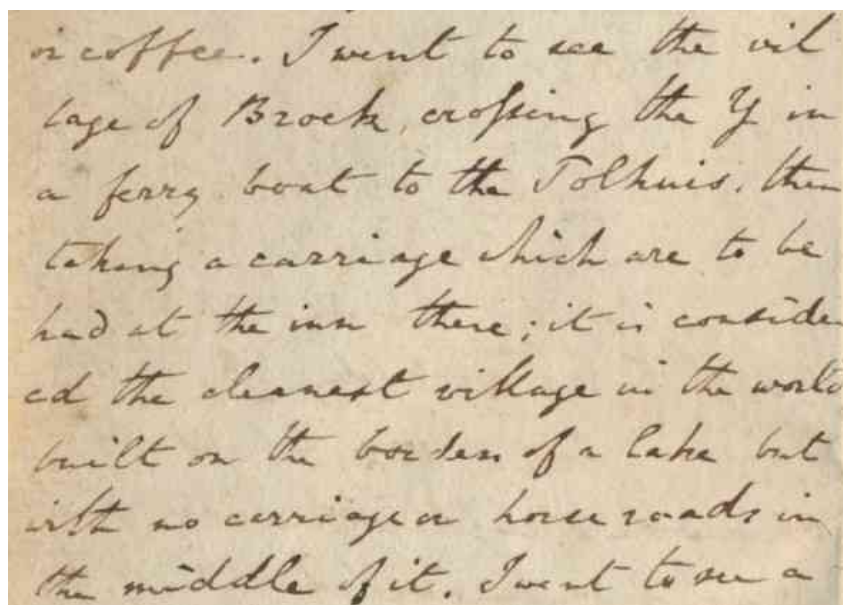 in coffee. I went to see the vil
lage of Broek, crossing the Y in
a ferry boat to the Tolhuis, then
taking a carriage which are to be
had at the inn there; it is consider
ed the cleanest village in the world
built on the borders of a lake but
with no carriage or horse roads in
the middle of it. I went to see a